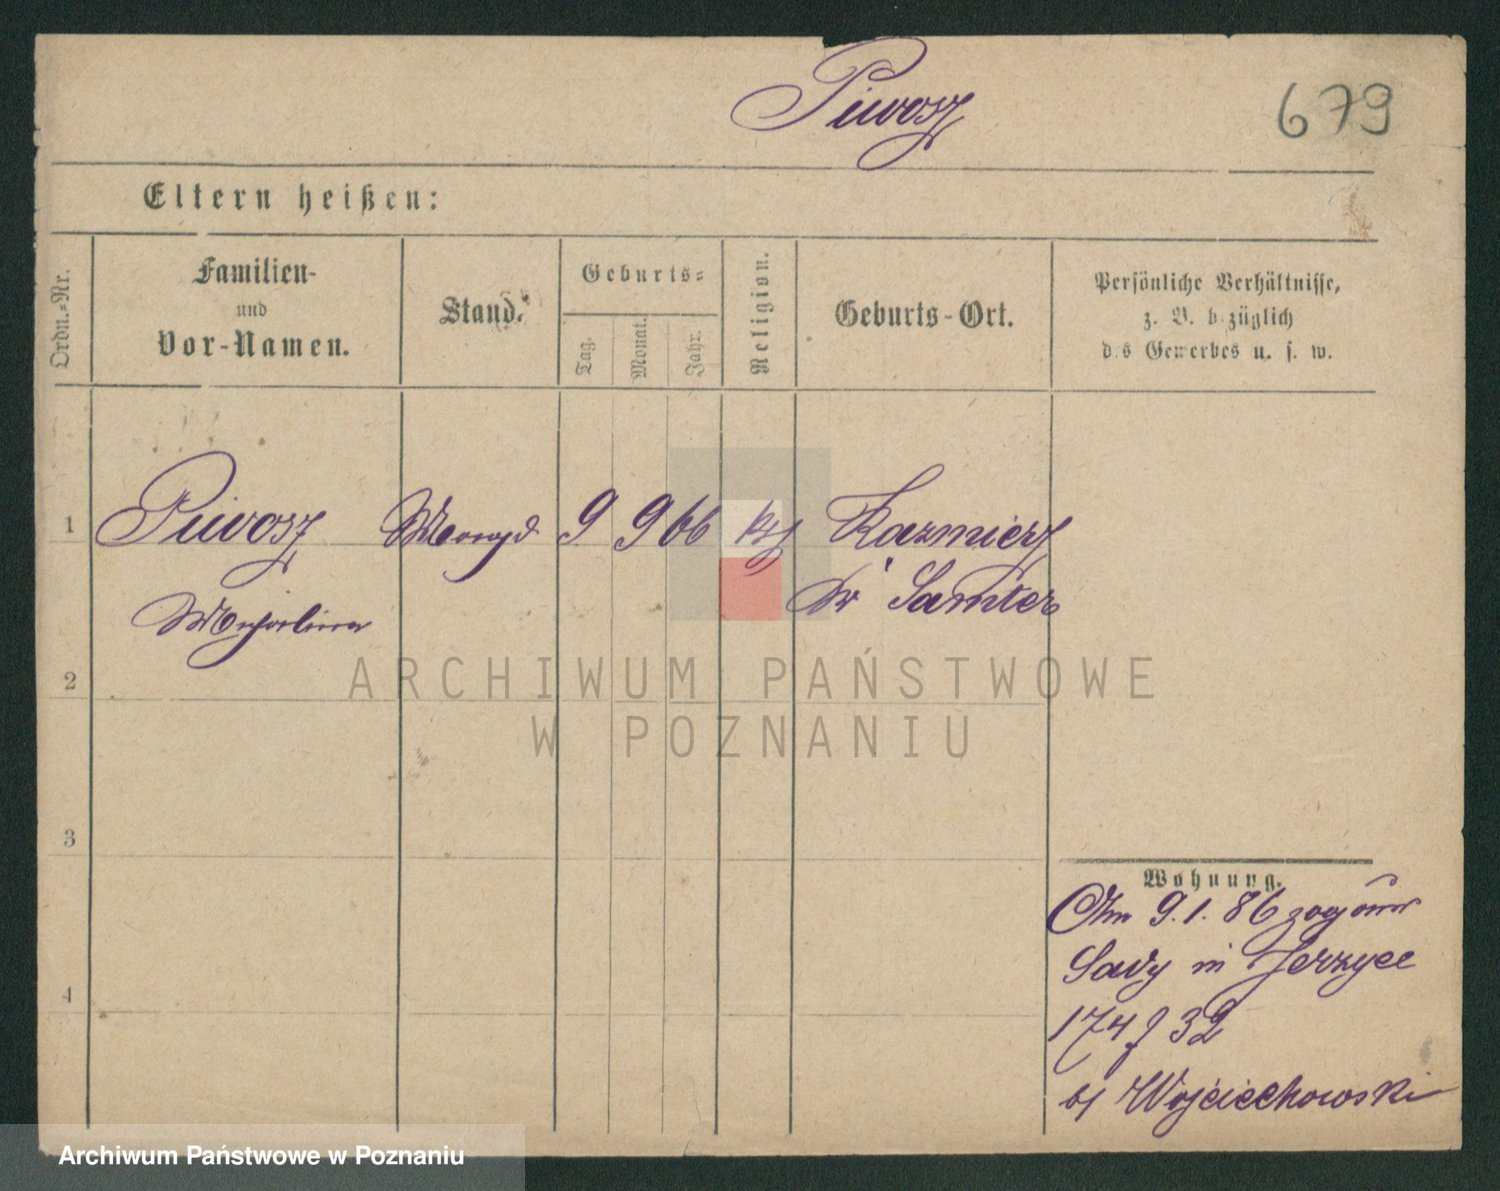 Piwosz
679
Eltern heißen:
Ordn.-Nr.
Familien-
und
Vor-Namen.
Stand.
Geburts-
Tag.
Monat.
Jahr.
Religion.
Geburts-Ort.
Persönliche Verhältnisse,
z. B. bezüglich
des Gewerbes u. s. w.
1 Piwosz Magd 9 9 66 kth Kazmierz
Kr Samter
2
3
4
Wohnung.
Am 9. 1. 86 zog aus
Sady in Jerzyce
174 f 32
bei Wojciechowski
ARCHIWUM PAŃSTWOWE
W POZNANIU
Archiwum Państwowe w Poznaniu